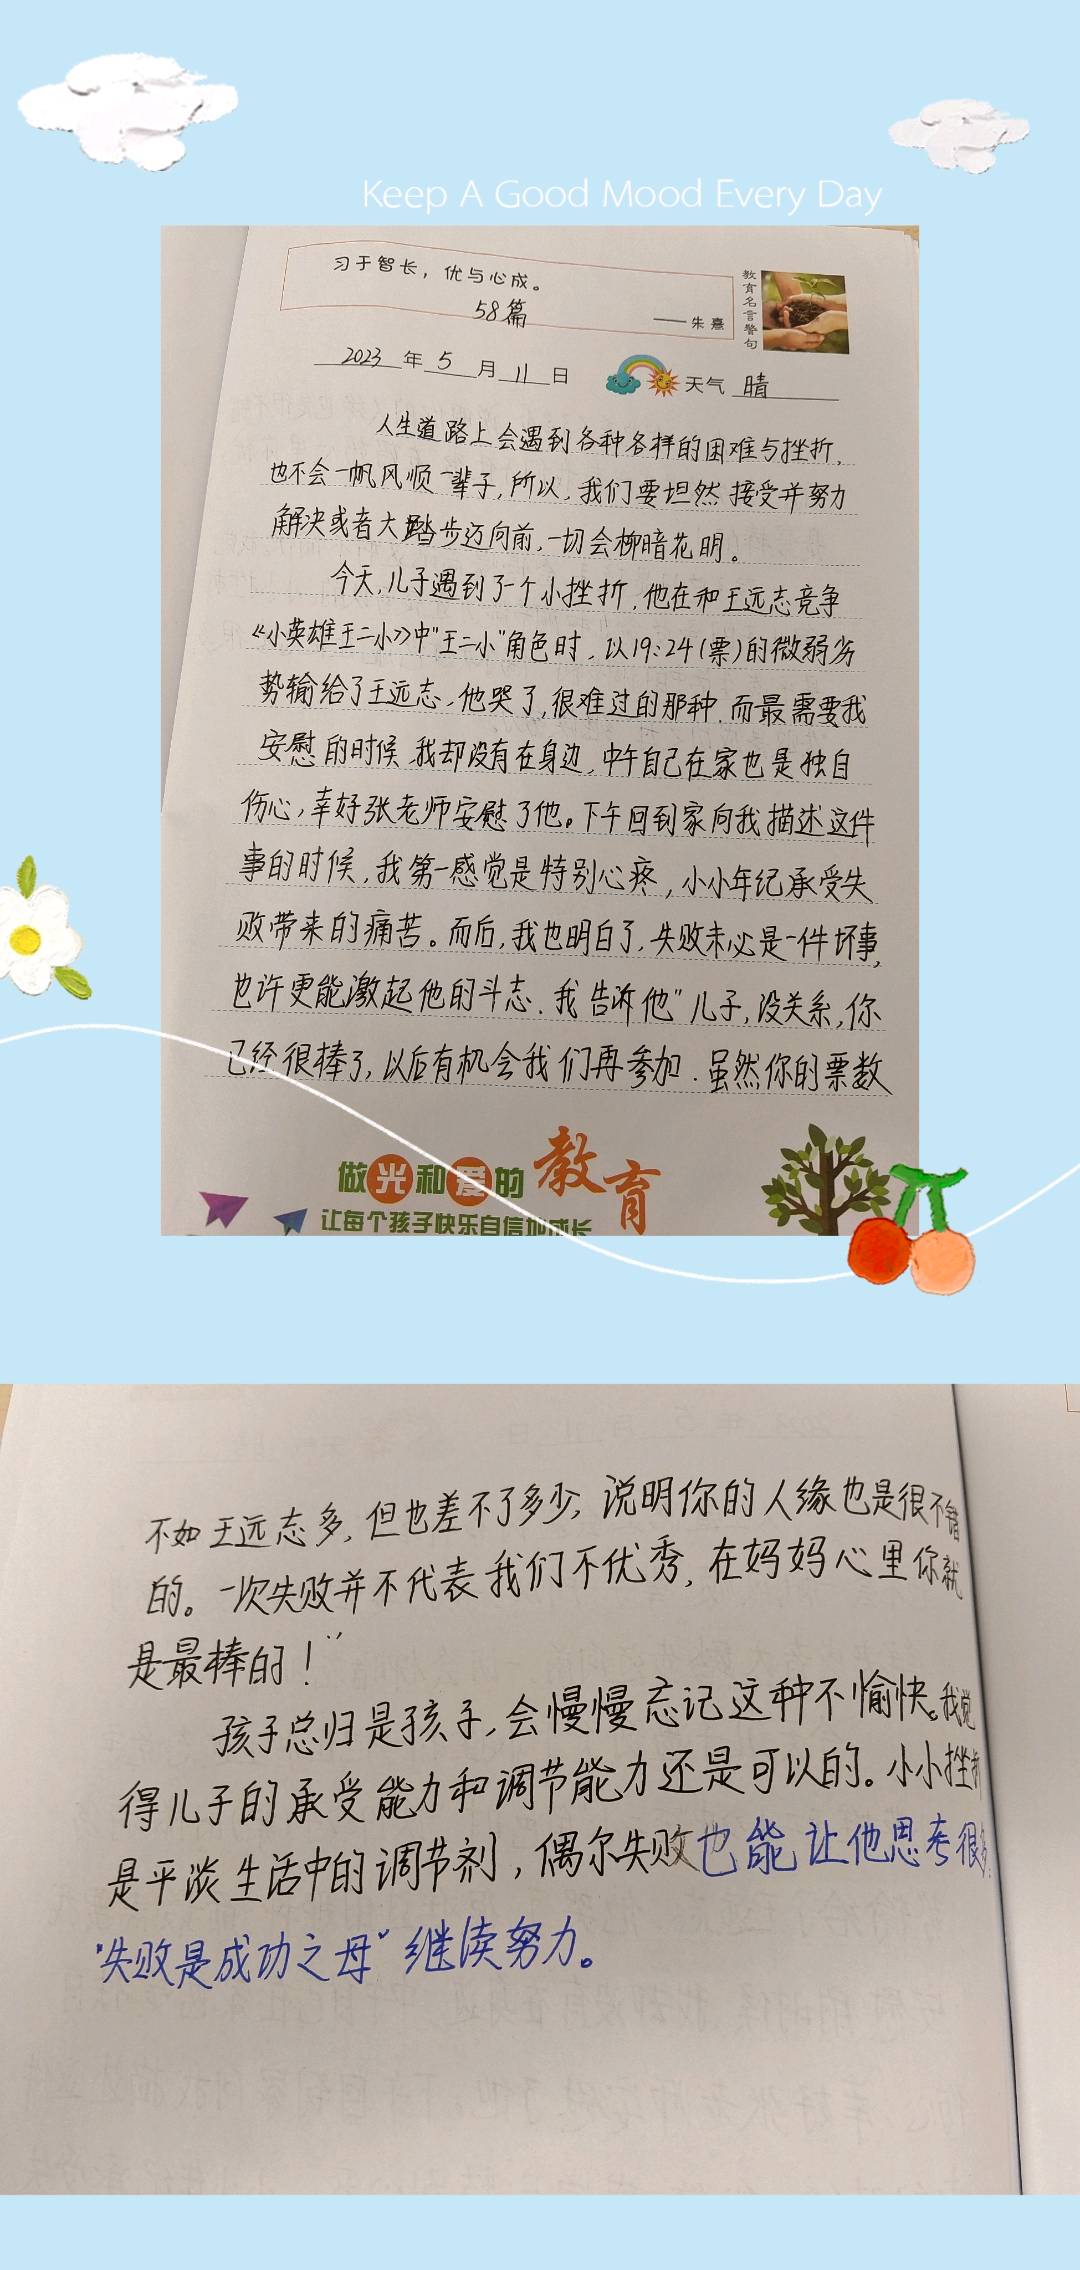 Keep A Good Mood Every Day
习于智长，优与心成。
58篇
——朱熹
教育名言警句
2023年5月11日
天气 晴
人生道路上会遇到各种各样的困难与挫折，
也不会一帆风顺一辈子，所以，我们要坦然接受并努力
解决或者大踏步迈向前，一切会柳暗花明。
今天，儿子遇到了一个小挫折，他在和王远志竞争
《小英雄王二小》中“王二小”角色时，以19:24(票)的微弱劣
势输给了王远志、他哭了，很难过的那种，而最需要我
安慰的时候，我却没有在身边，中午自己在家也是独自
伤心，幸好张老师安慰了他。下午回到家向我描述这件
事的时候，我第一感觉是特别心疼，小小年纪承受失
败带来的痛苦。而后，我也明白了，失败未必是一件坏事，
也许更能激起他的斗志．我告诉他“儿子，没关系，你
已经很棒了，以后有机会我们再参加．虽然你的票数
做光和爱的教育
让每个孩子快乐自信地成长
不如王远志多，但也差不了多少，说明你的人缘也是很不错
的。一次失败并不代表我们不优秀，在妈妈心里你就
是最棒的！”
孩子总归是孩子，会慢慢忘记这种不愉快。我觉
得儿子的承受能力和调节能力还是可以的。小小挫折
是平淡生活中的调节剂，偶尔失败也能让他思考很多．
“失败是成功之母”继续努力。